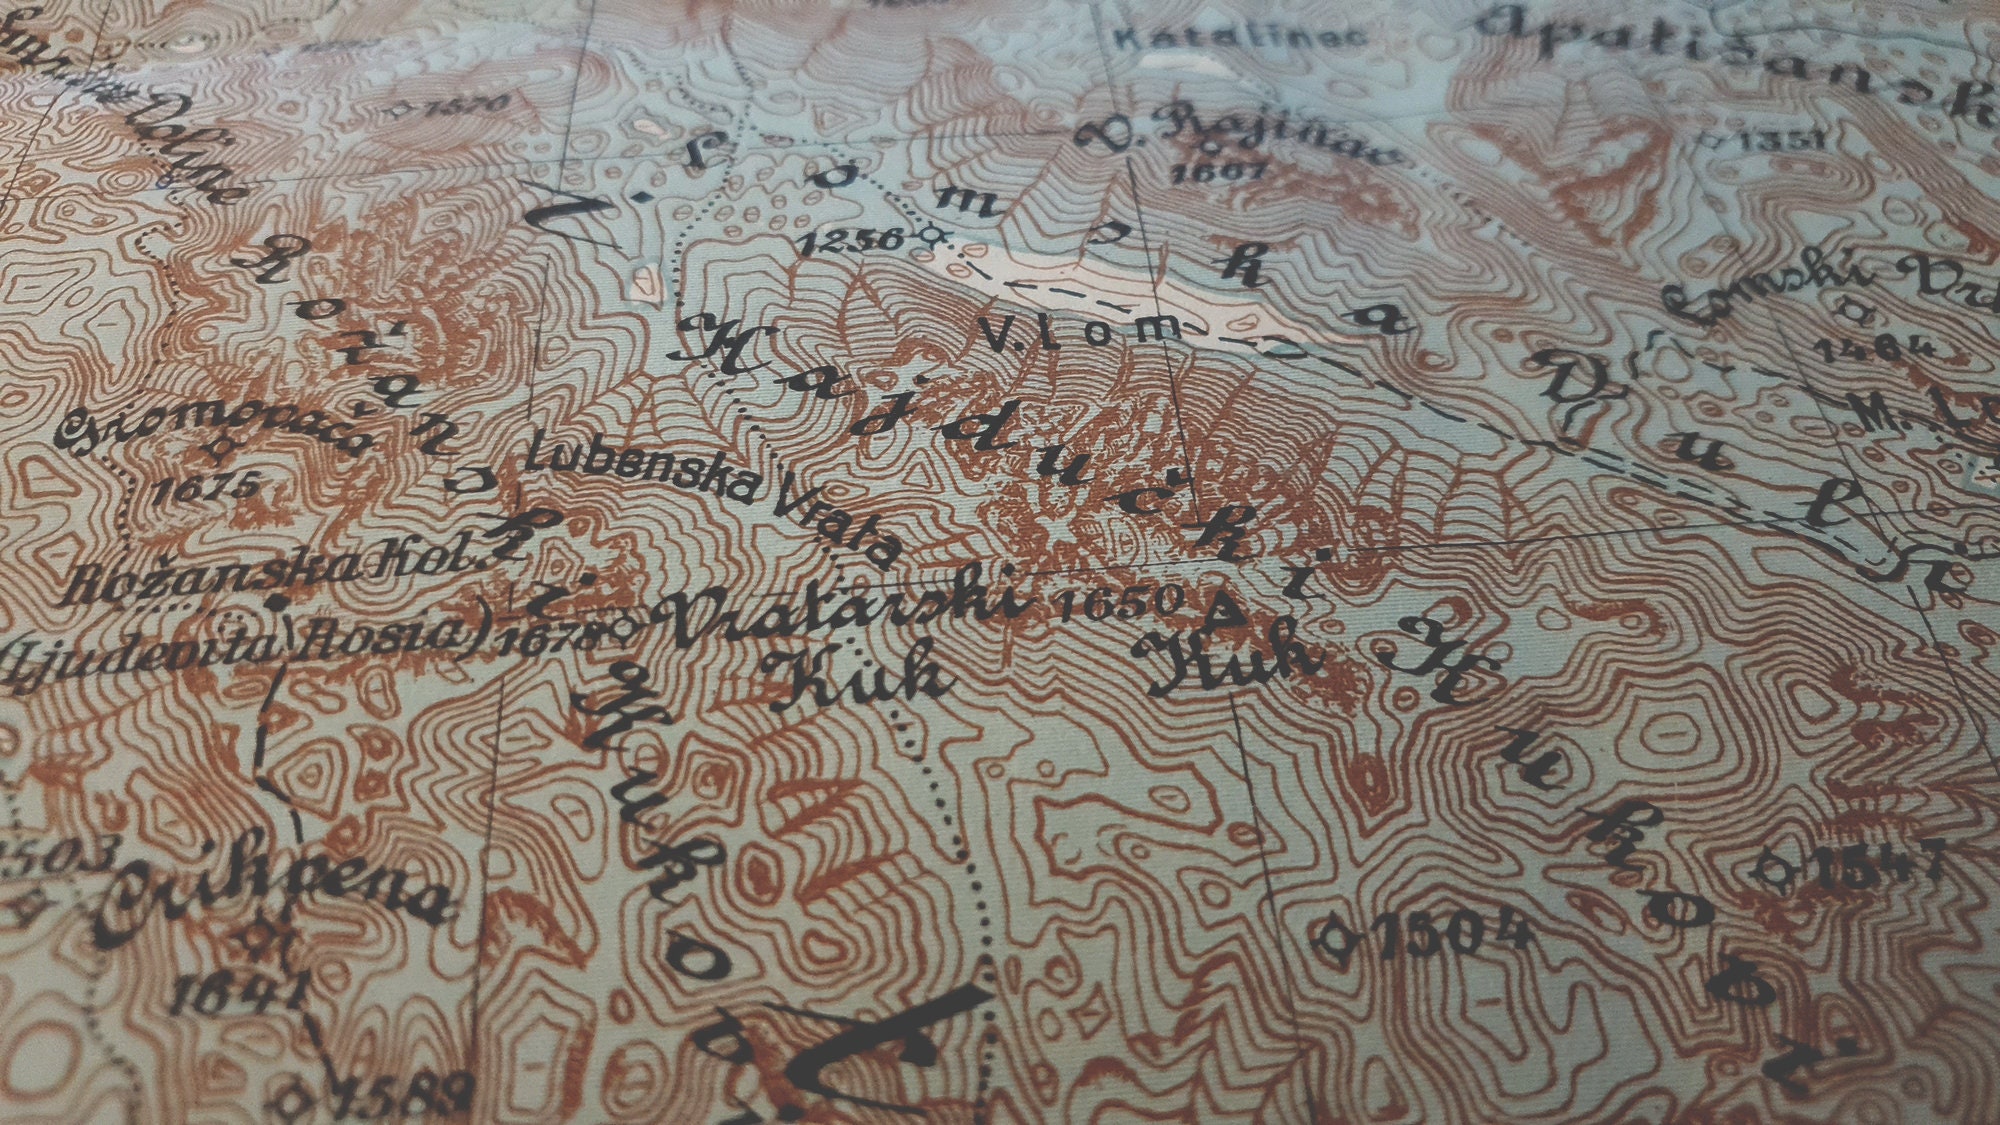 Katalinac
Apatišansk
Doline
1570
V. Rajinac
1667
1351
Lomska Dul
1256
V. Lom
Lomski Vrh
1464
M. Lo
Rožanski Kukovi
Hajdučki i Kukovi
Gromovača
1675
Lubenska Vrata
Rožanska Kol.
(Ljudevita Rosia)
1678
Vratarski
Kuk
1650
Kuk
1503
Crikvena
1641
1589
1504
1547